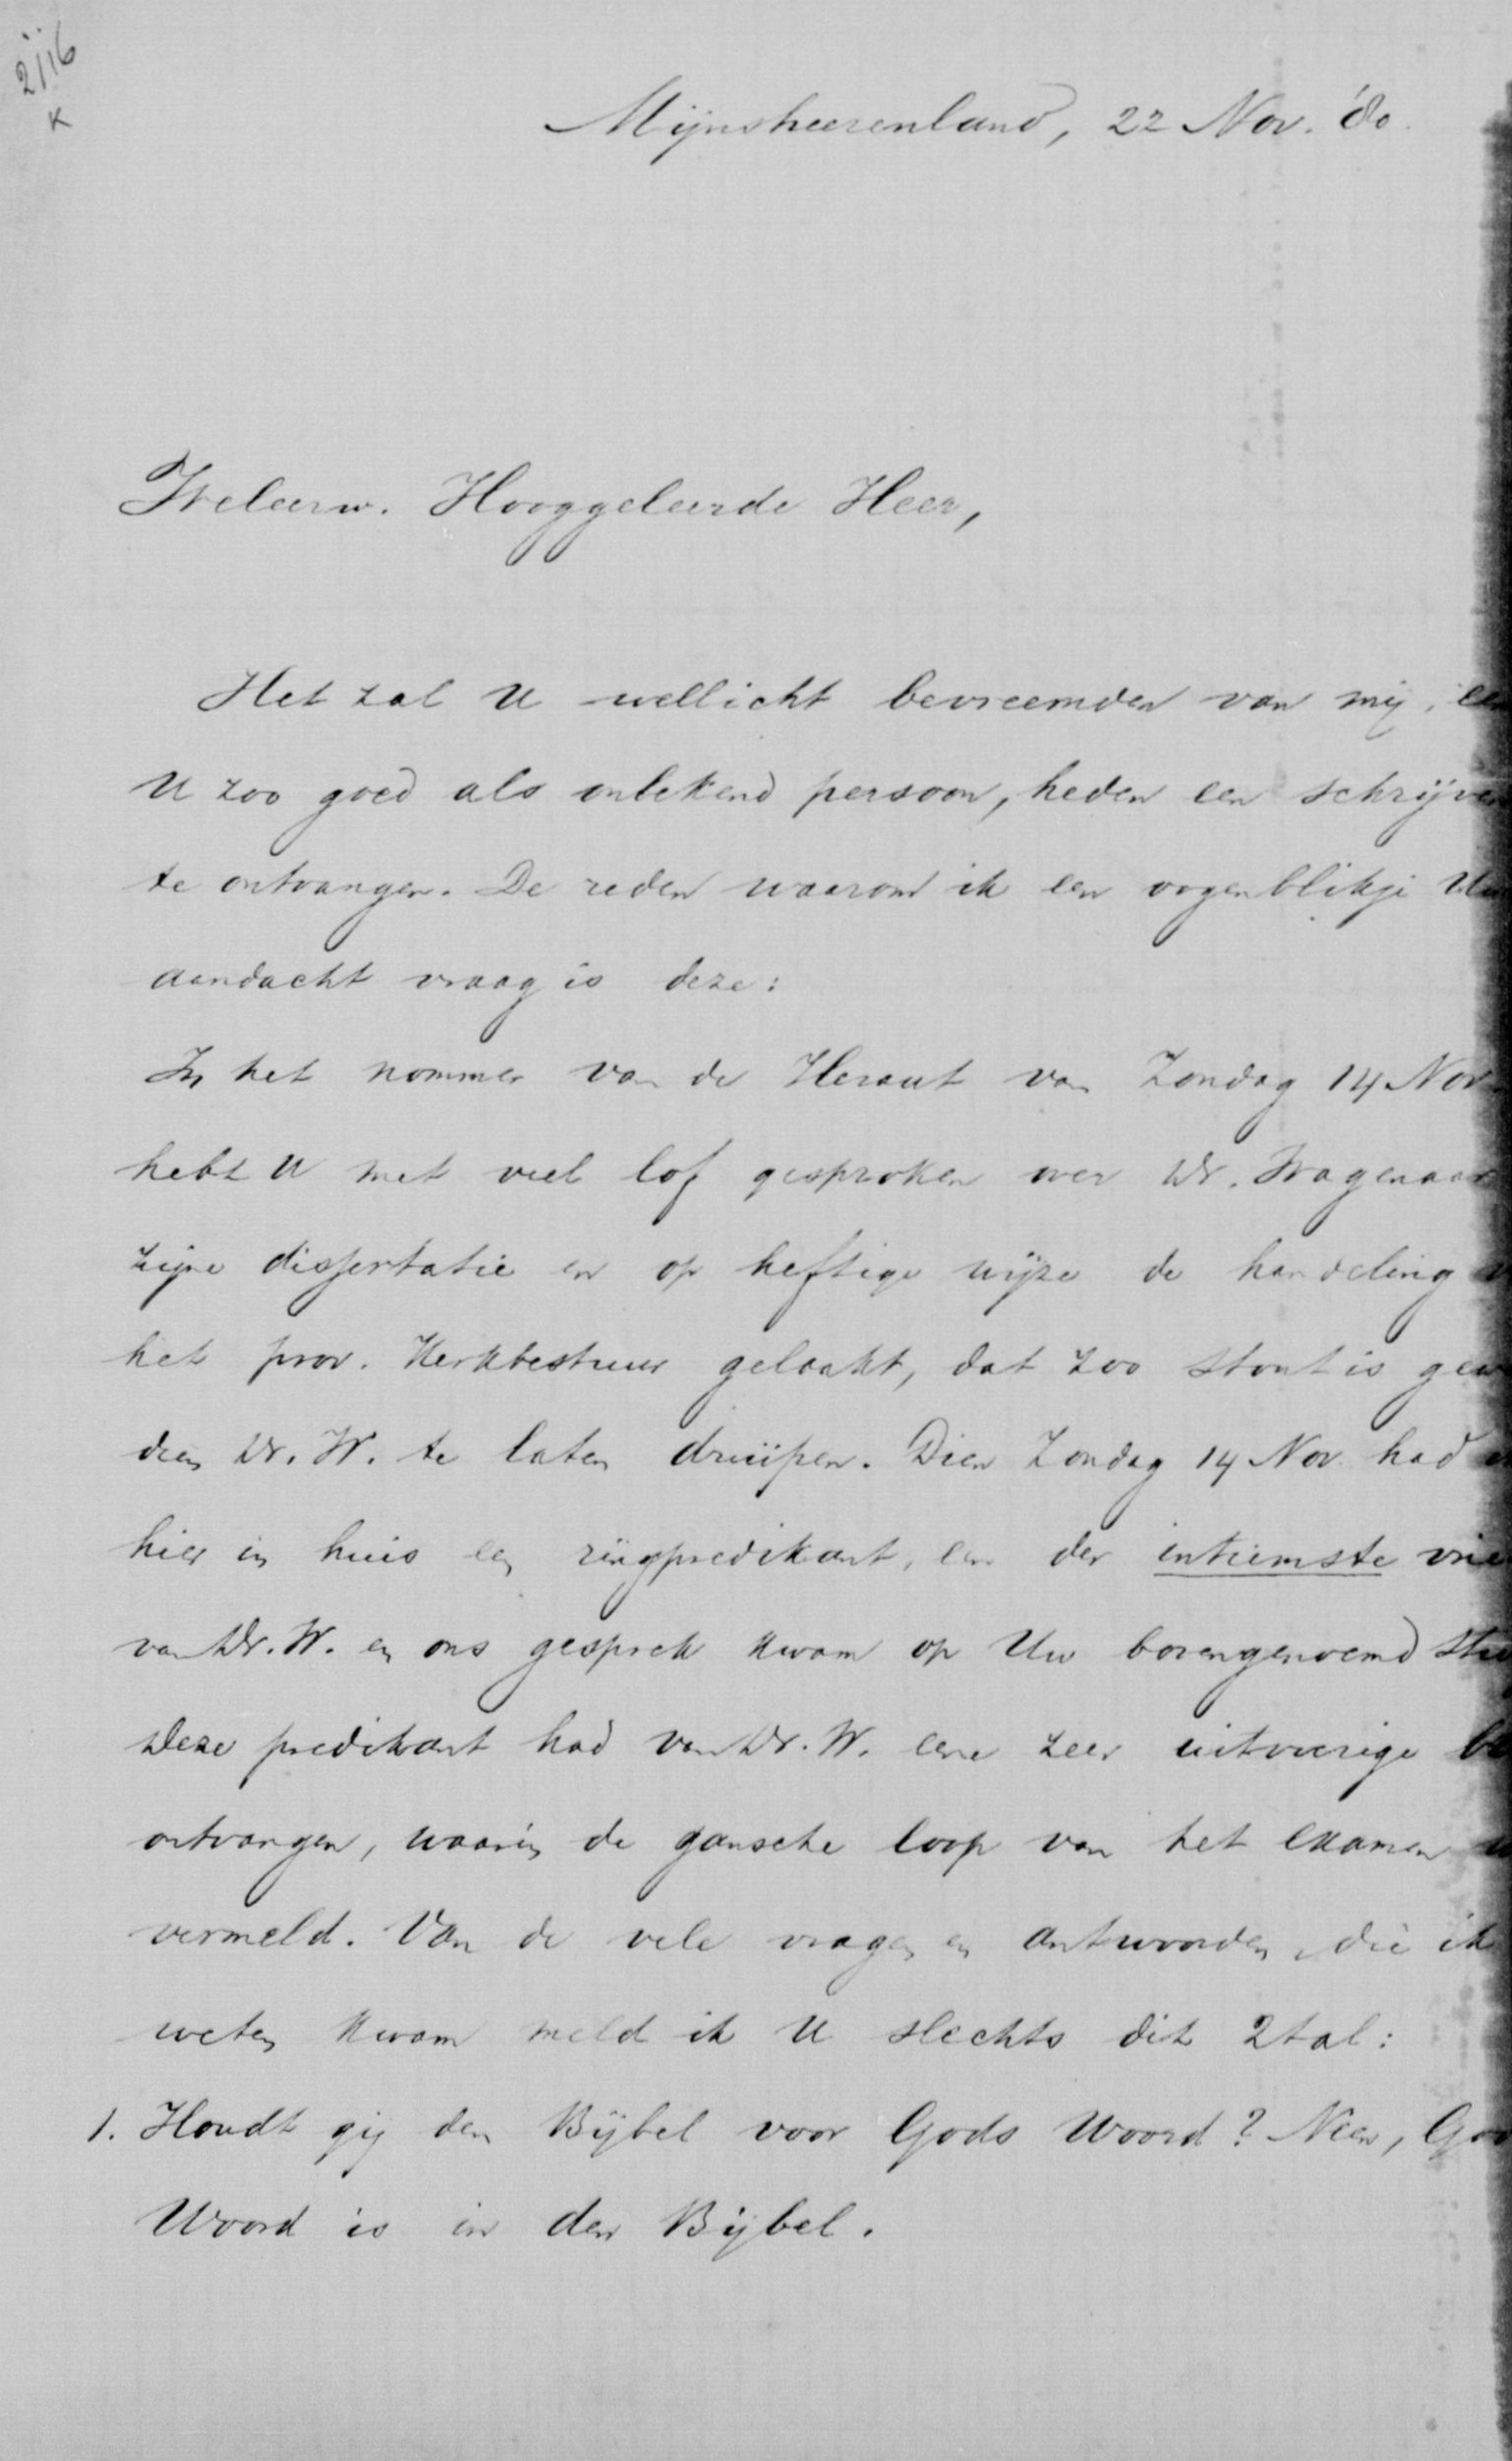 2116
K
Mijnsheerenland, 22 Nov. 80.
Weleerw. Hooggeleerde Heer,
Het zal U wellicht bevreemden van mij, een
U zoo goed als onbekend persoon, heden een schrijven
te ontvangen. De reden waarom ik een oogenblikje Uw
aandacht vraag is deze:
In het nommer van de Heraut van Zondag 14 Nov.
hebt U met veel lof gesproken over Dr. Wagenaar
zijne dissertatie en op heftige wijze de handeling
het prov. Kerkbestuur gelaakt, dat zoo stout is
dien Dr. W. te laten druipen. Dien Zondag 14 Nov. had
hier in huis een ringpredikant, een der intiemste
van Dr. W. en ons gesprek kwam op Uw bovengenoemd
Deze predikant had van Dr. W. eene zeer uitvoerige
ontvangen, waarin de gansche loop van het examen
vermeld. Van de vele vragen en antwoorden, die ik
weten kwam meld ik U slechts dit 2tal:
1. Houdt gij den Bijbel voor Gods Woord? Neen,
Woord is in den Bijbel.